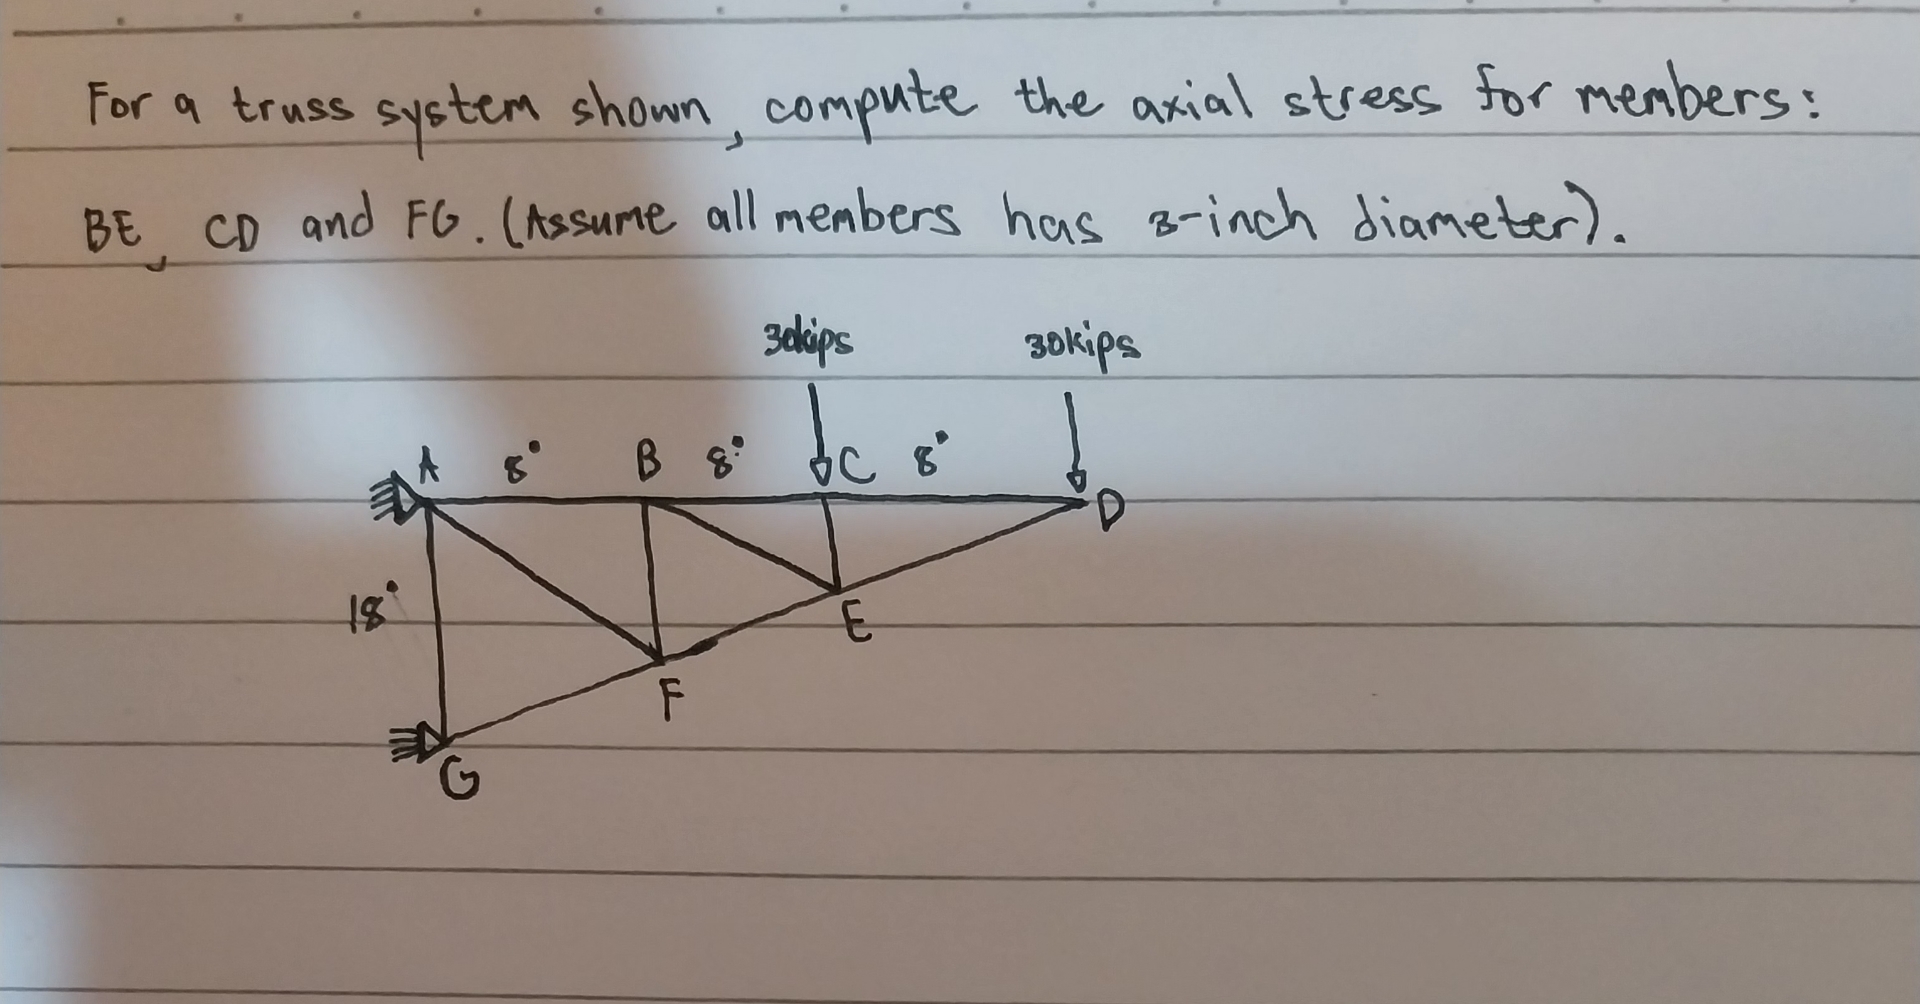 For a truss system shown, compute the axial stress for members:
BE, CD and FG. (Assume all members has 3-inch diameter).
30kips 30kips
A 8° B 8° C 8° D
18°
E
F
G